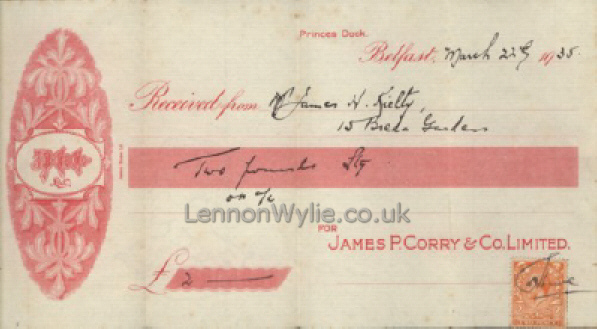 Princes Dock.
Belfast, March 22nd 1935
Received from Mr James H. Kielty,
15 Breda Gardens
Two pounds Stg
on a/c
LennonWylie.co.uk
FOR
JAMES P. CORRY & CO. LIMITED.
£ 2